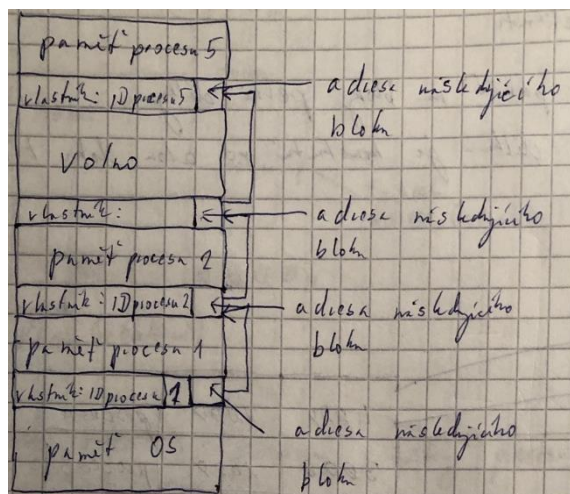 paměť procesu 5
vlastník: ID procesu 5
adresa následujícího
bloku
Volno
vlastník:
adresa následujícího
bloku
paměť procesu 2
vlastník: ID procesu 2
adresa následujícího
bloku
paměť procesu 1
vlastník: ID procesu 1
adresa následujícího
bloku
paměť OS